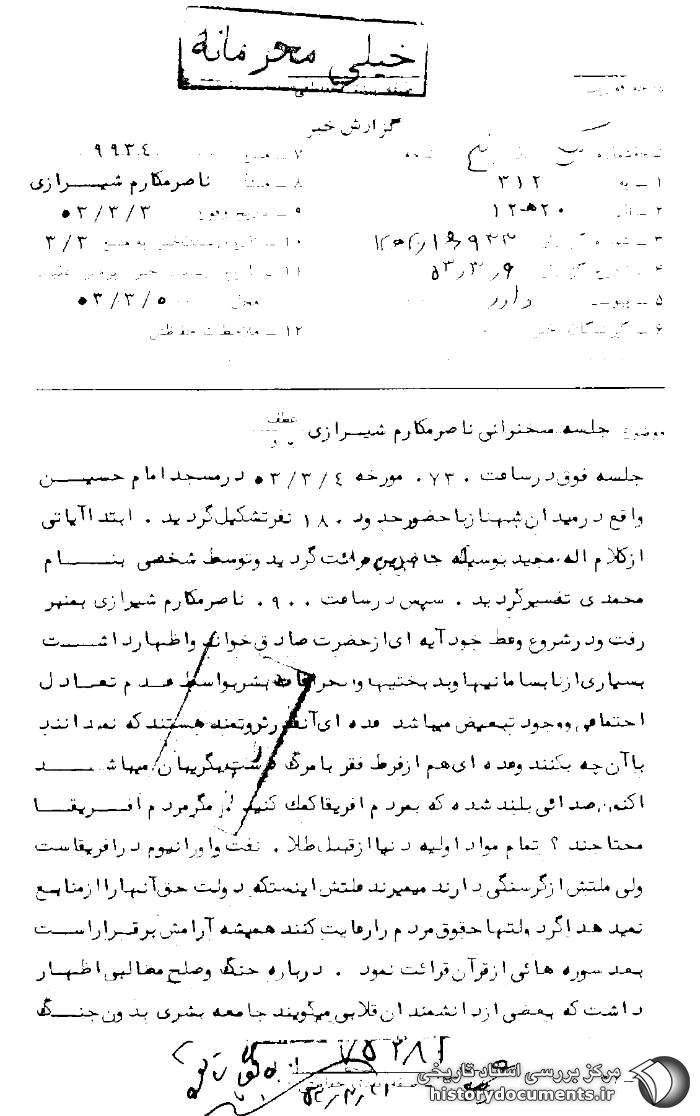 خیلی محرمانه
گزارش خبر
۱ ـ به ۳۱۲
۲ ـ از ۲۰ه‍۱۲
۵ ـ
۶ ـ گیرندگان خبر
۷ ـ منبع ۹۹۳٤
۸ ـ منشأ ناصر مکارم شیـــرازی
۹ ـ تاریخ وقوع ۵۳/۳/۳
۱۰ ـ تاریخ رسیدن خبر به منبع ۳/۳
۱۱ ـ تاریخ رسیدن خبر
محل ۵۳/۳/۵
۱۲ ـ ملاحظات حفاظتی
موضوع جلسه سخنرانی ناصر مکارم شیــرازی
عطف
جلسه فوق در ساعت ۰۷۳۰ مورخه ۵۳/۳/٤ در مسجد امام حسیـــن
واقع در میدان شهناز با حضور حدود ۱۸۰ نفر تشکیل گردید . ابتدا آیاتی
از کلام اله مجید بوسیله حاضرین قرائت گردید و توسط شخصی بنـــام
محمدی تفسیر گردید . سپس در ساعت ۰۹۰۰ ناصر مکارم شیرازی بمنبر
رفت و در شروع وعظ خود آیه ای از حضرت صادق خواند و اظهار داشـــت
بسیاری از نابسامانیها و بدبختیها و انحرافات بشر بواسطه عـدم تعـادل
اجتماعی و وجود تبعیض میباشد عده ای آنقدر ثروتمند هستند که نمیدانند
با آن چه بکنند و عده ای هم از فرط فقر با مرگ دست بگریبان میباشـــد
اکنون صدائی بلند شده که بمردم افریقا کمک کنید مگر مردم افــریقــا
محتاجند ؟ تمام مواد اولیه دنیا از قبیل طلا . نفت و اورانیوم در افریقاست
ولی ملتش از گرسنگی دارند میمیرند علتش اینستکه دولت حق آنها را از منابع
نمیدهد اگر دولتها حقوق مردم را رعایت کنند همیشه آرامش برقرار است
بعد سوره هائی از قرآن قرائت نمود . درباره جنگ و صلح مطالبی اظهار
داشت که بعضی از دانشمندان قلابی میگویند جامعه بشری بدون جنـــگ
مرکز بررسی اسناد تاریخی
historydocuments.ir